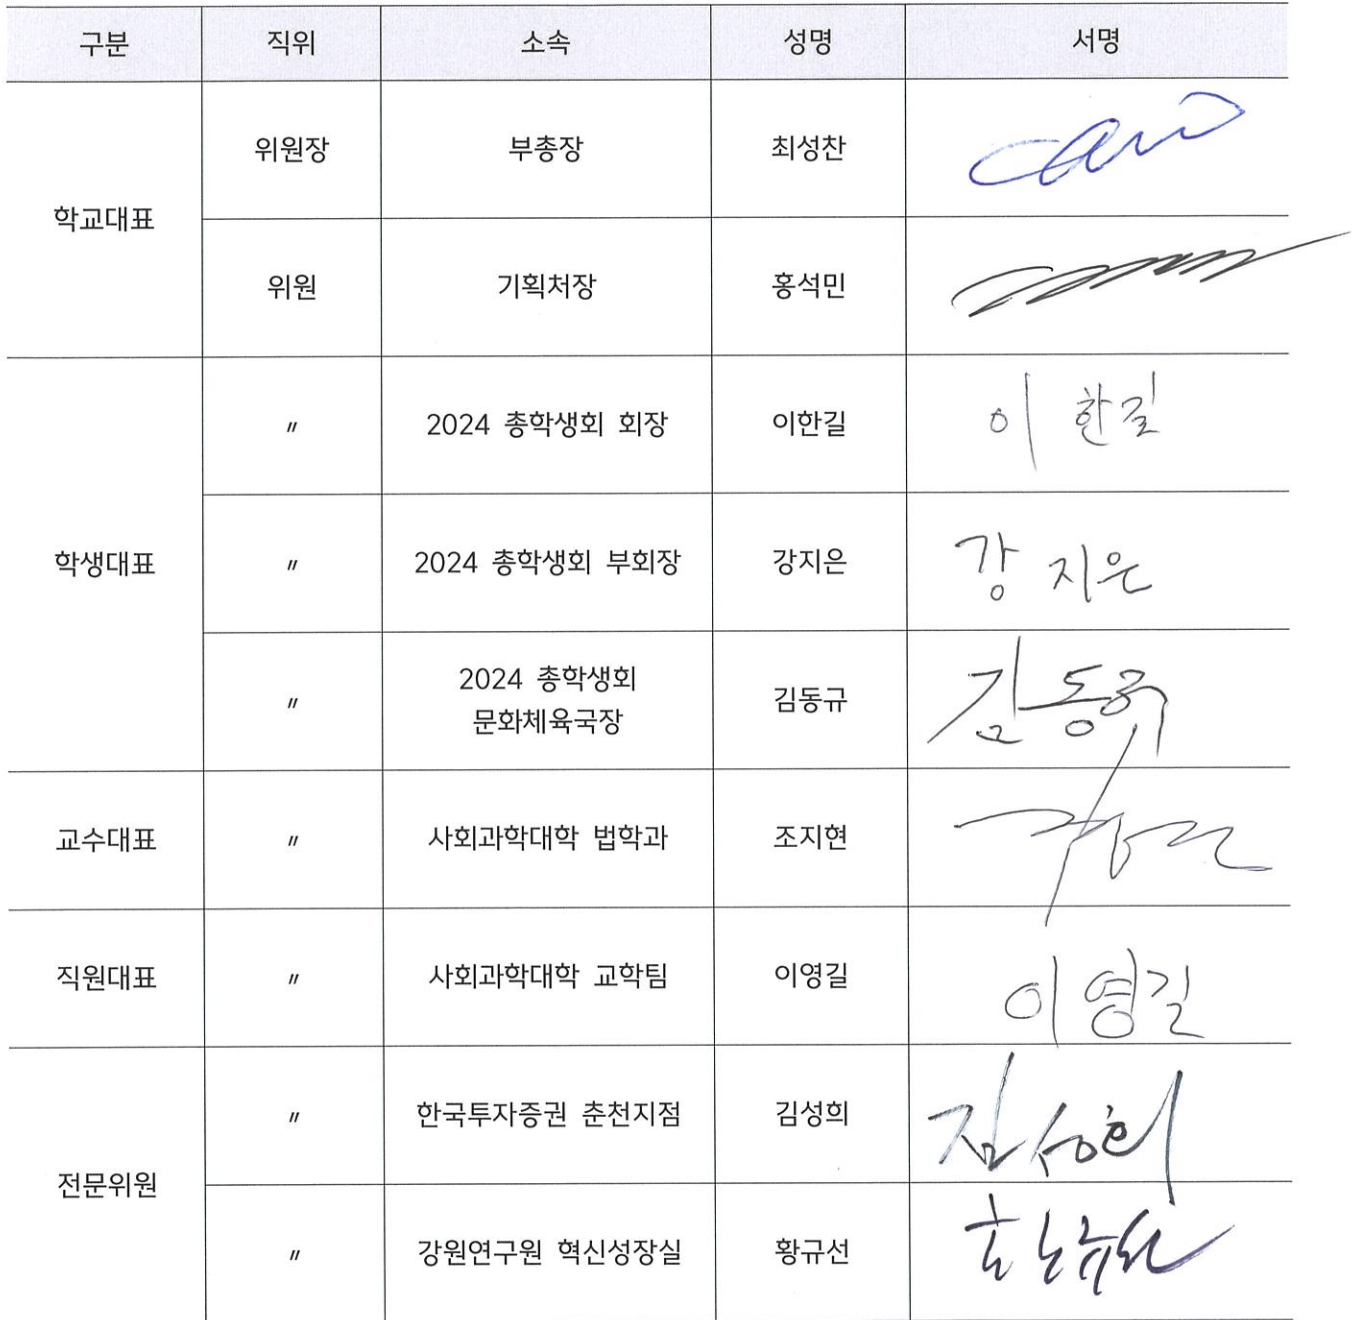 구분 직위 소속 성명 서명
학교대표
위원장 부총장 최성찬
위원 기획처장 홍석민
학생대표
〃 2024 총학생회 회장 이한길 이한길
〃 2024 총학생회 부회장 강지은 강지은
〃 2024 총학생회
문화체육국장 김동규 김동규
교수대표 〃 사회과학대학 법학과 조지현
직원대표 〃 사회과학대학 교학팀 이영길 이영길
전문위원
〃 한국투자증권 춘천지점 김성희 김성희
〃 강원연구원 혁신성장실 황규선